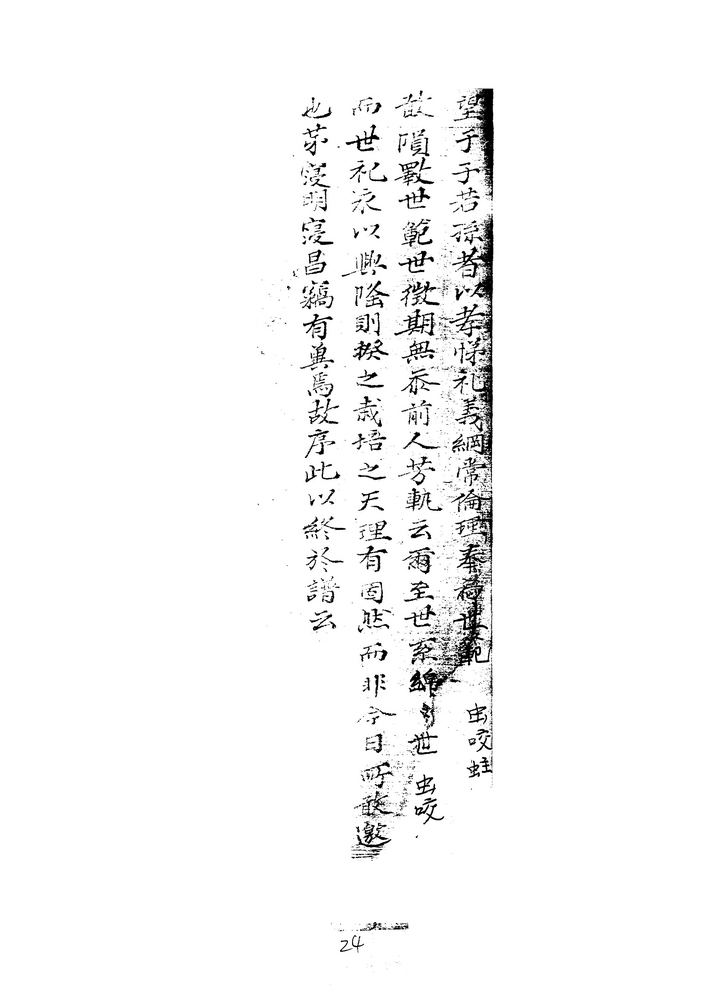 望乎子若孫者以孝悌礼義綱常倫理奉為世範 虫咬蛀
故顗數世範世徵期無忝前人芳軌云爾至世系綿 世 虫咬
而世祀永以興隆則揆之栽培之天理有固然而非今日所敢邀
也苐寖明寖昌竊有冀焉故序此以終於譜云
24